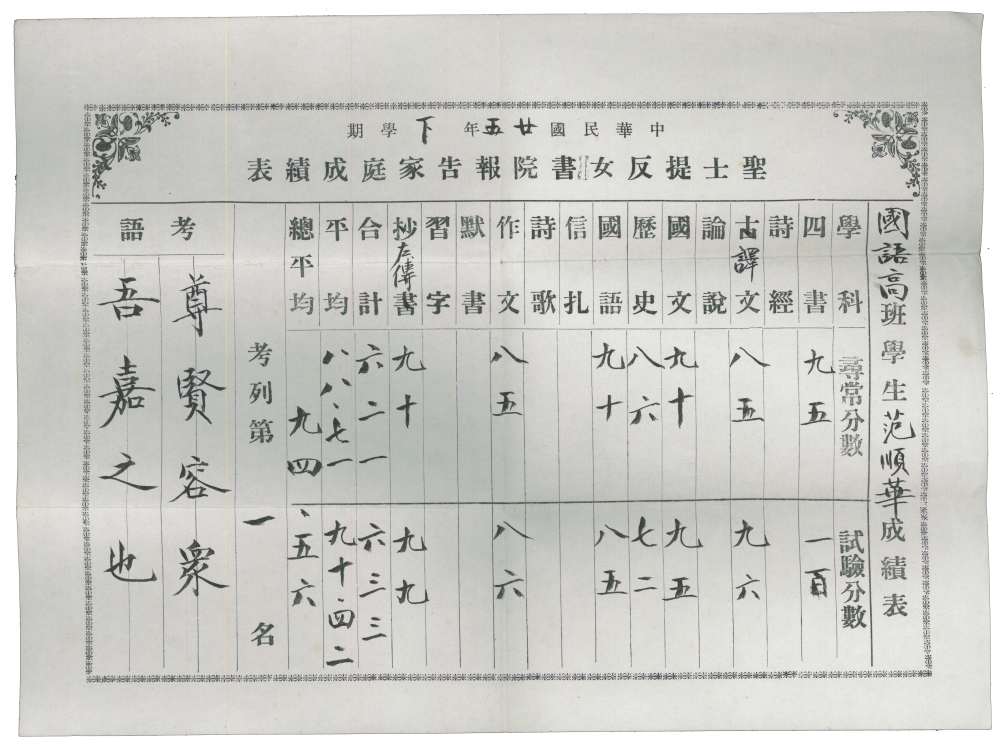 中華民國廿五年下學期
聖士提反女書院報告家庭成績表
國語高班學生范順華成績表
學科 尋常分數 試驗分數
四書 九五 一百
詩經
古譯文 八五 九六
論說
國文 九十 九五
歷史 八六 七二
國語 九十 八五
信扎
詩歌
作文 八五 八六
默書
習字
抄左傳書 九十 九九
合計 六二一 六三三
平均 八八、七一 九十、四二
總平均 九四、五六
考列第一名
考語
尊賢容衆
吾嘉之也